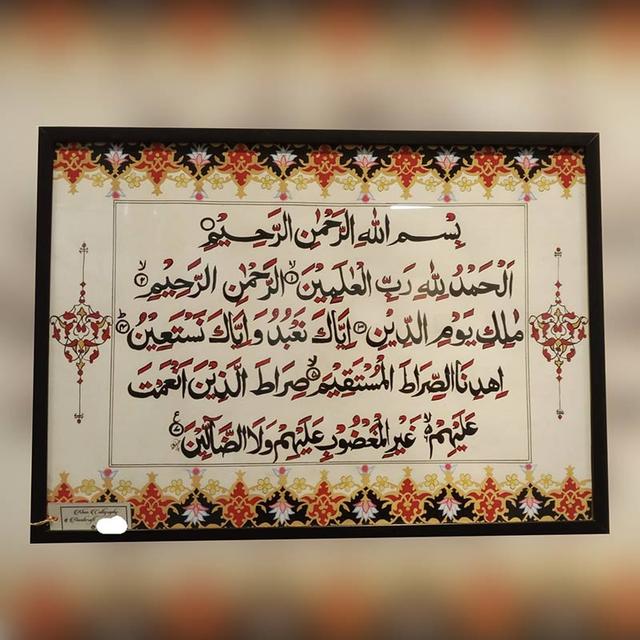 بِسْمِ اللهِ الرَّحْمٰنِ الرَّحِيْمِ
اَلْحَمْدُ لِلّٰهِ رَبِّ الْعٰلَمِيْنَ ۱ الرَّحْمٰنِ الرَّحِيْمِ ۲
مٰلِكِ يَوْمِ الدِّيْنِ ۳ اِيَّاكَ نَعْبُدُ وَاِيَّاكَ نَسْتَعِيْنُ ۴
اِهْدِنَا الصِّرَاطَ الْمُسْتَقِيْمَ ۵ صِرَاطَ الَّذِيْنَ اَنْعَمْتَ
عَلَيْهِمْ ۶ غَيْرِ الْمَغْضُوْبِ عَلَيْهِمْ وَلَا الضَّآلِّيْنَ ۷
Calligraphy